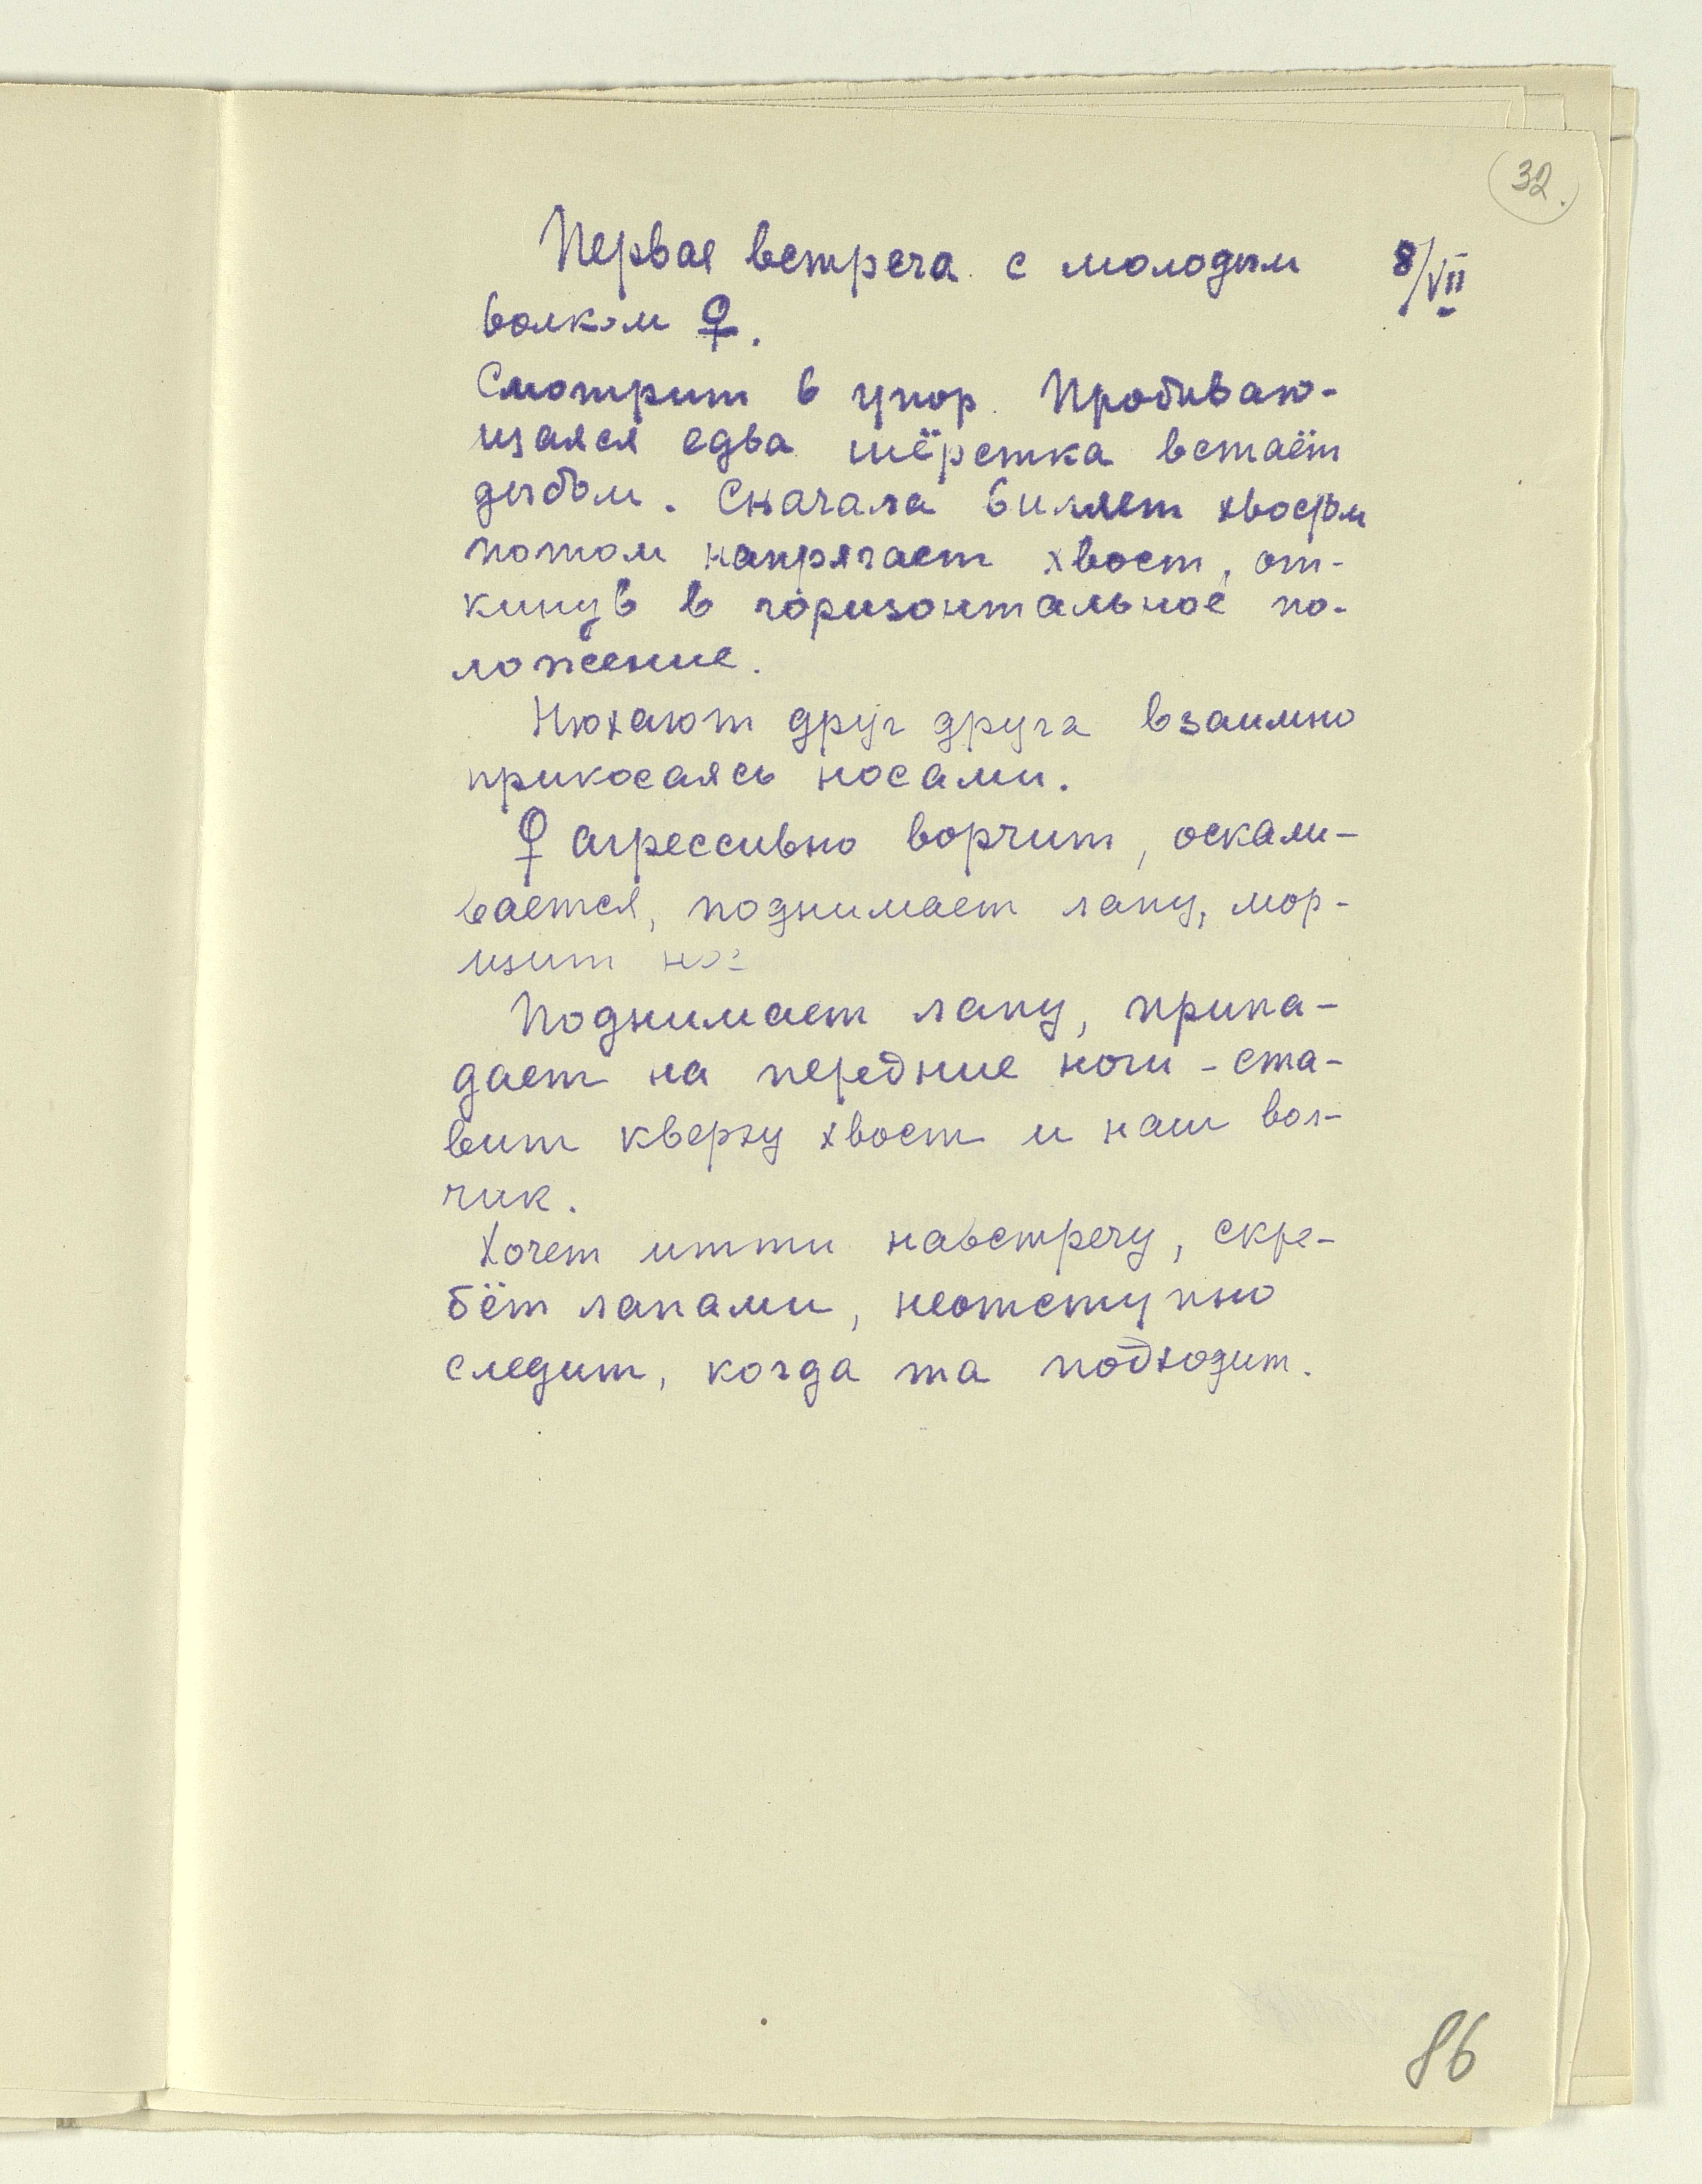 32.
Первая встреча с молодым 8/VII
волком ♀.
Смотрит в упор. Пробиваю-
щаяся едва шёрстка встаёт
дыбом. Сначала виляет хвостом
потом напрягает хвост, от-
кинув в горизонтальное по-
ложение.
Нюхают друг друга взаимно
прикасаясь носами.
♀ агрессивно ворчит, оскали-
вается, поднимает лапу, мор-
щит нос
Поднимает лапу, припа-
дает на передние ноги - ста-
вит кверху хвост и наш вол-
чик.
Хочет итти навстречу, скре-
бёт лапами, неотступно
следит, когда та подходит.
86